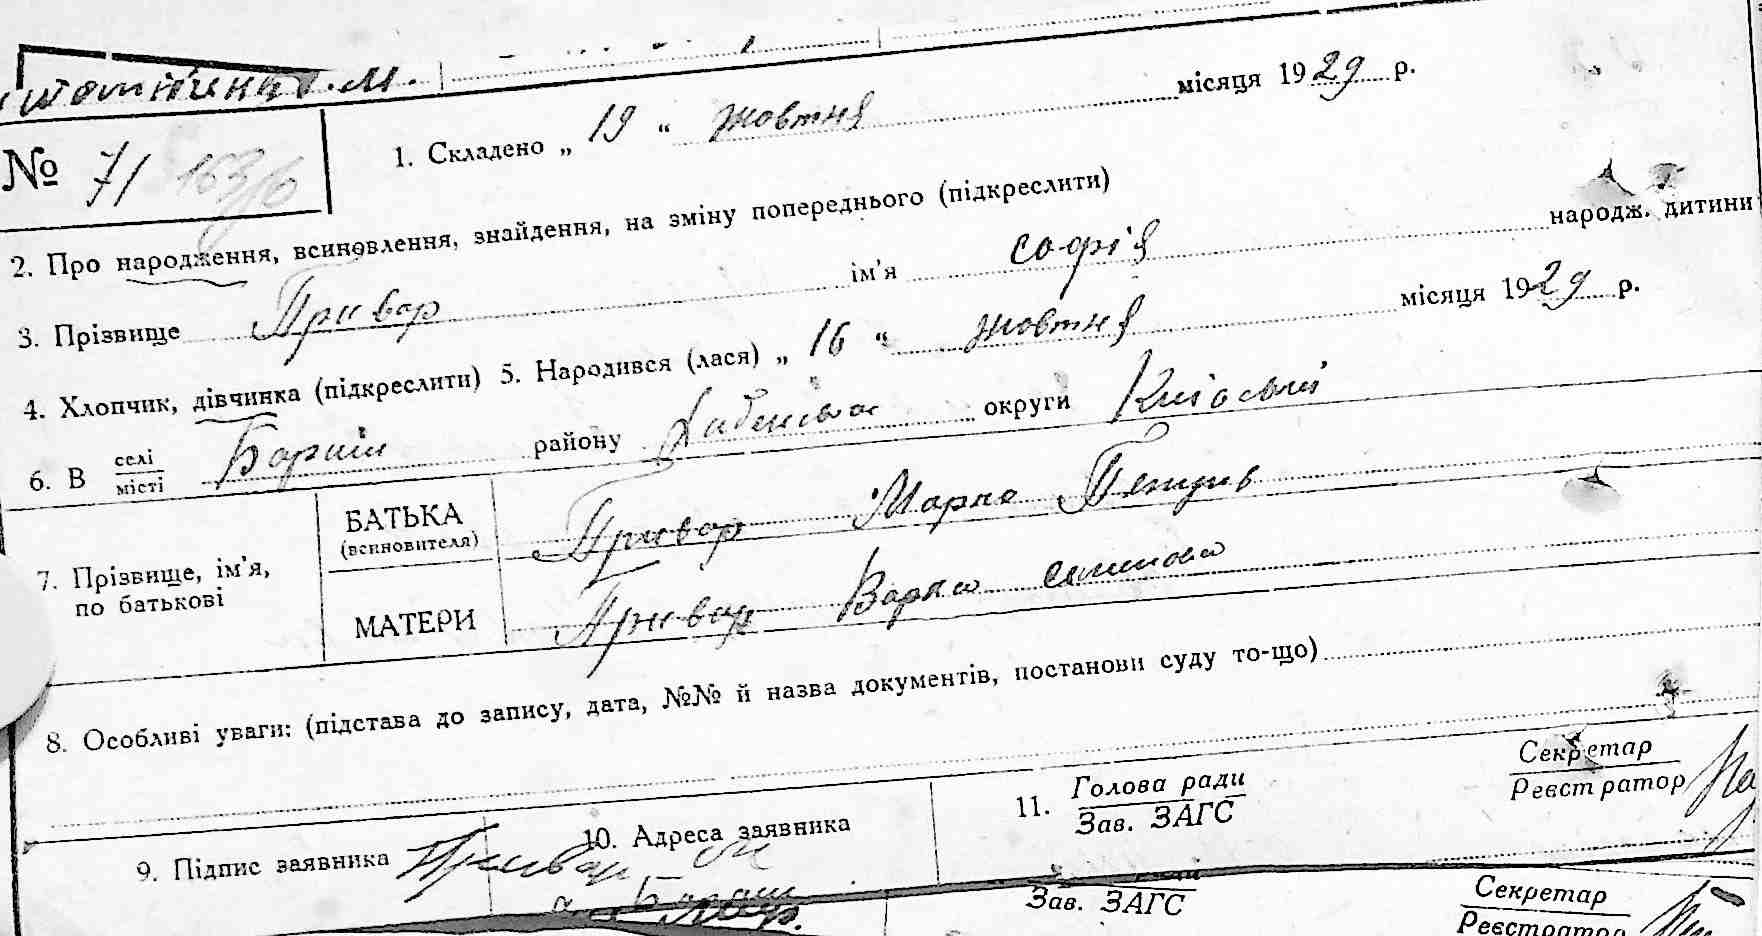 № 71 153/6
1. Складено „ 19 “ жовтня місяця 1929 р.
2. Про народження, всиновлення, знайдення, на зміну попереднього (підкреслити)
3. Прізвище Привар ім’я Софія народж. дитини
4. Хлопчик, дівчинка (підкреслити) 5. Народився (лася) „ 16 “ жовтня місяця 1929 р.
6. В селі місті району округи
7. Прізвище, ім’я, по батькові
БАТЬКА (всиновителя) Привар Марко
МАТЕРИ Привар Варка
8. Особливі уваги: (підстава до запису, дата, №№ й назва документів, постанови суду то-що)
9. Підпис заявника Привар 10. Адреса заявника 11. Голова ради Зав. ЗАГС Секретар Реєстратор
Зав. ЗАГС Секретар
Реєстратор